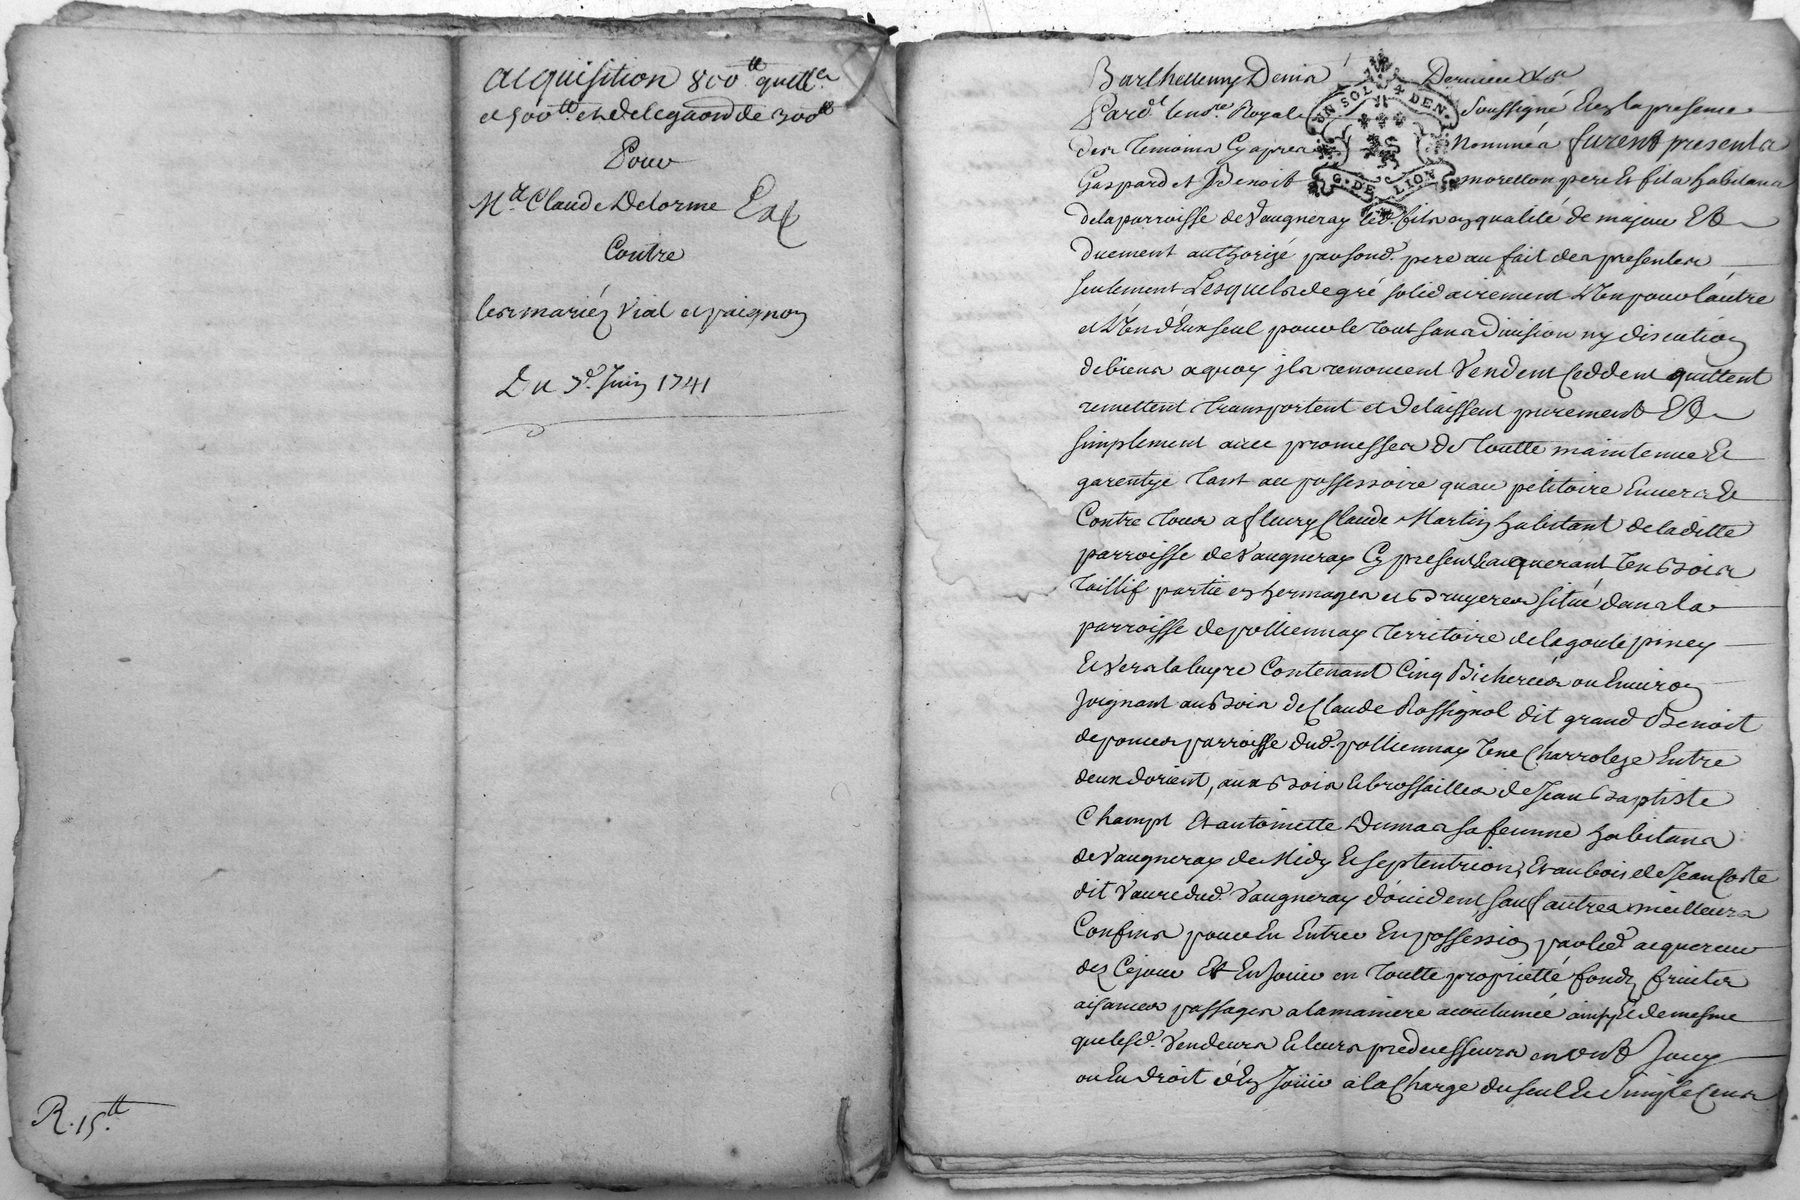 acquisition 800tt quitt.ce
de 500tt et delegaõn de 300tt
Pour
Mr. Claude Delorme Exp
Contre
les mariéz Vial et paignon
Du 3e. Juin 1741
R. 15.tt
Barthellemy Denis
UN SOL 4 DEN.
G. DE LION
Gard. te no.re Royal soussigné Et en la presence
des Temoins Cy apres Nomméz furent presents
Gaspard et Benoist morellon pere Et fils habitans
de la parroisse de Vaugneray led. fils en qualité de majeur Et
duement authorizé par sond. pere au fait des presentes
seulement Lesquels de gré solidairement L'un pour l'autre
et L'un d'Eux seul pour le tout sans division ny discution
de biens a quoy ils renoncent Vendent Ceddent quittent
remettent transportent et delaissent purement Et
simplement avec promesses de toutte maintenue Et
garentye tant au possessoire qu'au petitoire Envers Et
Contre tous a fleury Claude Martin habitant de laditte
parroisse de Vaugneray Cy present et acquerant Un bois
taillif partie en hermages et bruyeres situé dans la
parroisse de pollionnay territoire de la goute piney
Et vers la luyre Contenant Cinq Bicherées ou Environ
Joignant au bois de Claude Rossignol dit grand Benoist
de ponces parroisse dud. pollionnay Une Charroleze Entre
deux d'orient, aux bois et brossailles de Jean Baptiste
Champt Et antoinette Dumas sa femme habitans
de Vaugneray de Midy Et septentrion, Et au bois de Jean Coste
dit Vaure dud. Vaugneray d'occident sauf autres meilleurs
Confins pour En Entrer En possession par led. acquereur
dez Cejour Et En Jouir en toutte proprietté fondz fruits
aisances passages a la maniere acoutumée ainsy Et de mesme
que lesd. Vendeurs Et leurs predecesseurs en ont Jouy
ou Eu droit d'En Joüir a la Charge du seul Et simple Cens